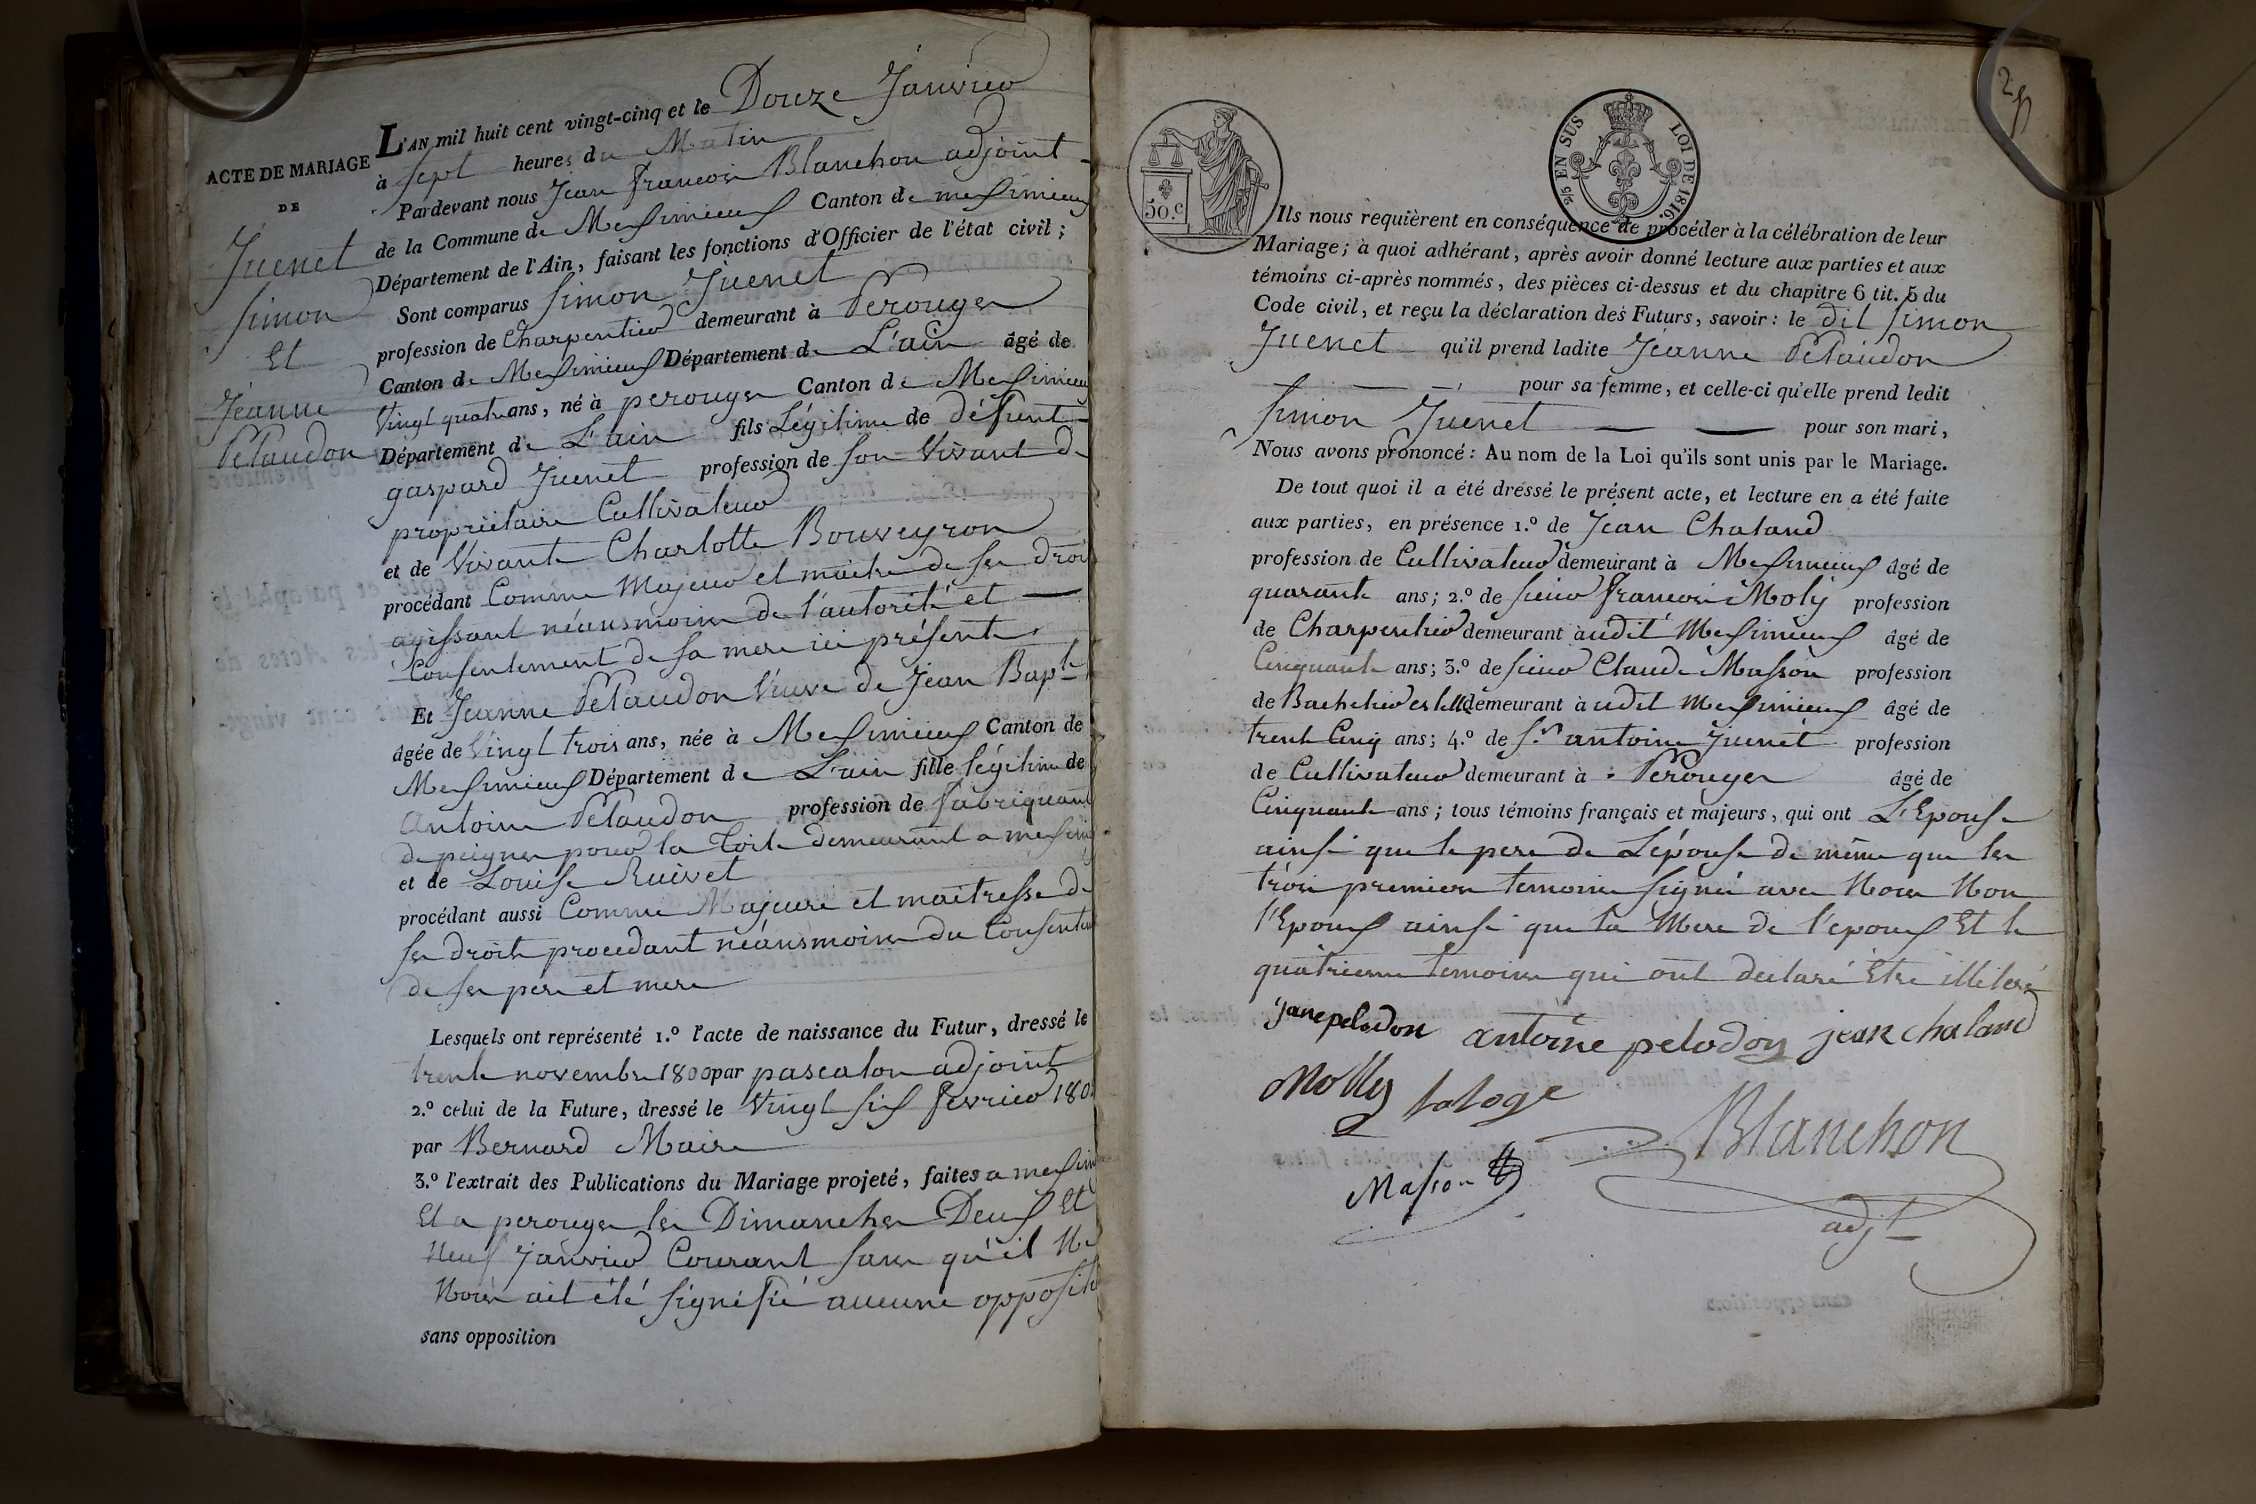 L'AN mil huit cent vingt-cinq et le Douze Janvier
à sept heures du Matin
ACTE DE MARIAGE
DE
Juenet
Simon
Et
Jéanne
Pelaudon
Pardevant nous Jean francois Blanchon adjoint
de la Commune de Meximieux Canton de meximieux
Département de l'Ain, faisant les fonctions d'Officier de l'état civil;
Sont comparus Simon Juenet
profession de Charpentier demeurant à Perouges
Canton de Meximieux Département de L'ain âgé de
Vingt quatre ans, né à perouges Canton de Meximieux
Département de L'ain fils Légitime de défunt
gaspard Juenet profession de son Vivant
propriétaire Cultivateur
et de Vivante Charlotte Bouveyron
procédant Comme Majeur et maitre de ses droi
agissant néansmoins de l'autorité et
Consentement de sa mere ici présente
Et Jeanne Pelaudon Veuve de Jean Bapte
âgée de Vingt trois ans, née à Meximieux Canton de
Meximieux Département de L'ain fille légitime de
Antoine Pelaudon profession de fabriquant
de peignes pour la Toile demeurant a mexim
et de Louise Ruivet
procédant aussi Comme Majeure et maitresse de
ses droits procedant néansmoins du Consentem
de ses pere et mere
Lesquels ont représenté 1.º l'acte de naissance du Futur, dressé le
trente novembre 1800 par pascalon adjoint
2.º celui de la Future, dressé le Vingt six fevrier 180
par Bernard Maire
3.º l'extrait des Publications du Mariage projeté, faites a mexim
Et a perouges les Dimanches Deux Et
Neuf Janvier Courant sans qu'il Ne
Nous ait été signifié aucune opposit
sans opposition
50.c
2/5 EN SUS LOI DE 1816.
Ils nous requièrent en conséquence de procéder à la célébration de leur
Mariage; à quoi adhérant, après avoir donné lecture aux parties et aux
témoins ci-après nommés, des pièces ci-dessus et du chapitre 6 tit. 5 du
Code civil, et reçu la déclaration des Futurs, savoir: le dit Simon
Juenet qu'il prend ladite Jéanne Pelaudon
pour sa femme, et celle-ci qu'elle prend ledit
Simon Juenet pour son mari,
Nous avons prononcé: Au nom de la Loi qu'ils sont unis par le Mariage.
De tout quoi il a été dressé le présent acte, et lecture en a été faite
aux parties, en présence 1.º de Jean Chaland
profession de Cultivateur demeurant à Meximieux âgé de
quarante ans; 2.º de sieur francois Moly profession
de Charpentier demeurant à udit Meximieux âgé de
Cinquante ans; 3.º de sieur Claude Masson profession
de Bachelier es demeurant à udit Meximieux âgé de
trente Cinq ans; 4.º de Sr antoine Juenet profession
de Cultivateur demeurant à Perouges âgé de
Cinquante ans; tous témoins français et majeurs, qui ont L'Epouse
ainsi que le pere de L'épouse de même que les
trois premiers temoins signé avec Nous Non
l'Epoux ainsi que la Mere de l'epoux Et le
quatrieme temoins qui ont declaré Etre illiteré
Jane pelodon antoine pelodon jean chaland
Molly
Blanchon
Masson
adjt